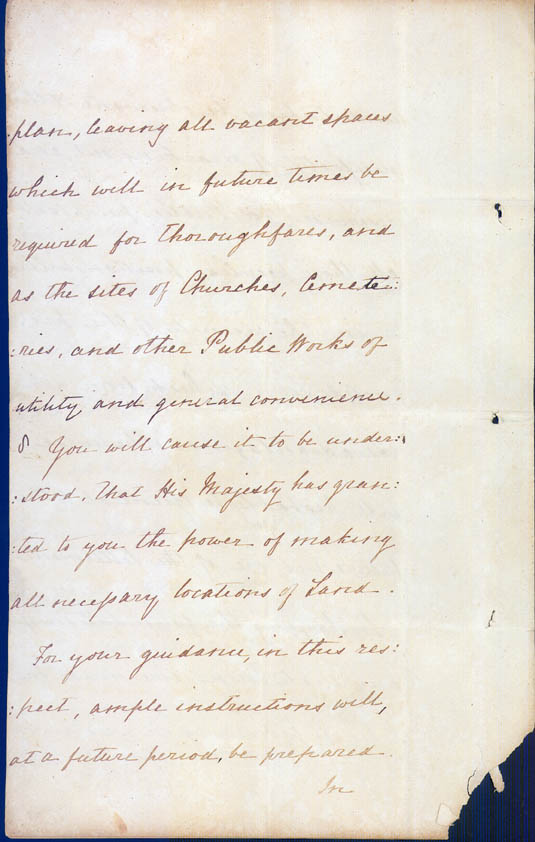 plan, leaving all vacant spaces
which will in future times be
required for thoroughfares, and
as the sites of Churches, Cemete:
:ries, and other Public Works of
utility, and general convenience.
8 You will cause it to be under:
:stood, that His Majesty has gran:
:ted to you the power of making
all necessary locations of Land.
For your guidance, in this res:
:pect, ample instructions will,
at a future period, be prepared.
In